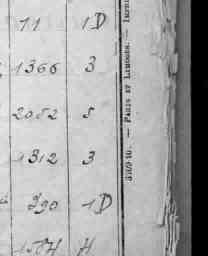 11 1D
1366 3
2052 5
1312 3
390 1D
H
37040. — PARIS ET LIMOGES. —